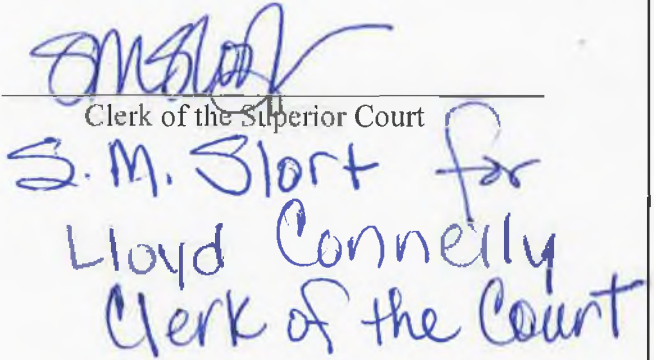 SMSlort
Clerk of the Superior Court
S.M. Slort for
Lloyd Connelly
Clerk of the Court